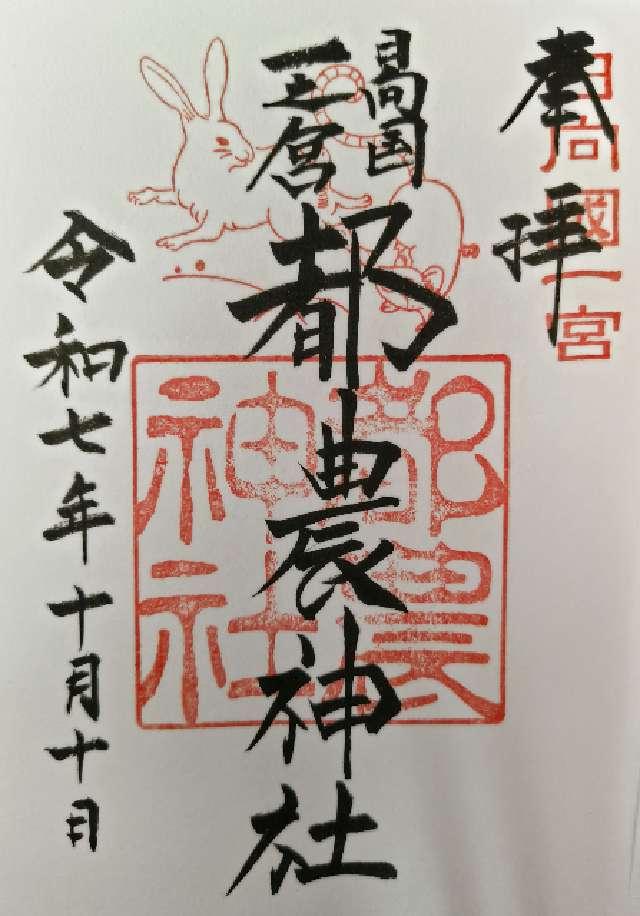 奉拝
日向國一宮
日向国
一之宮
都農神社
都農神社
令和七年十月十日